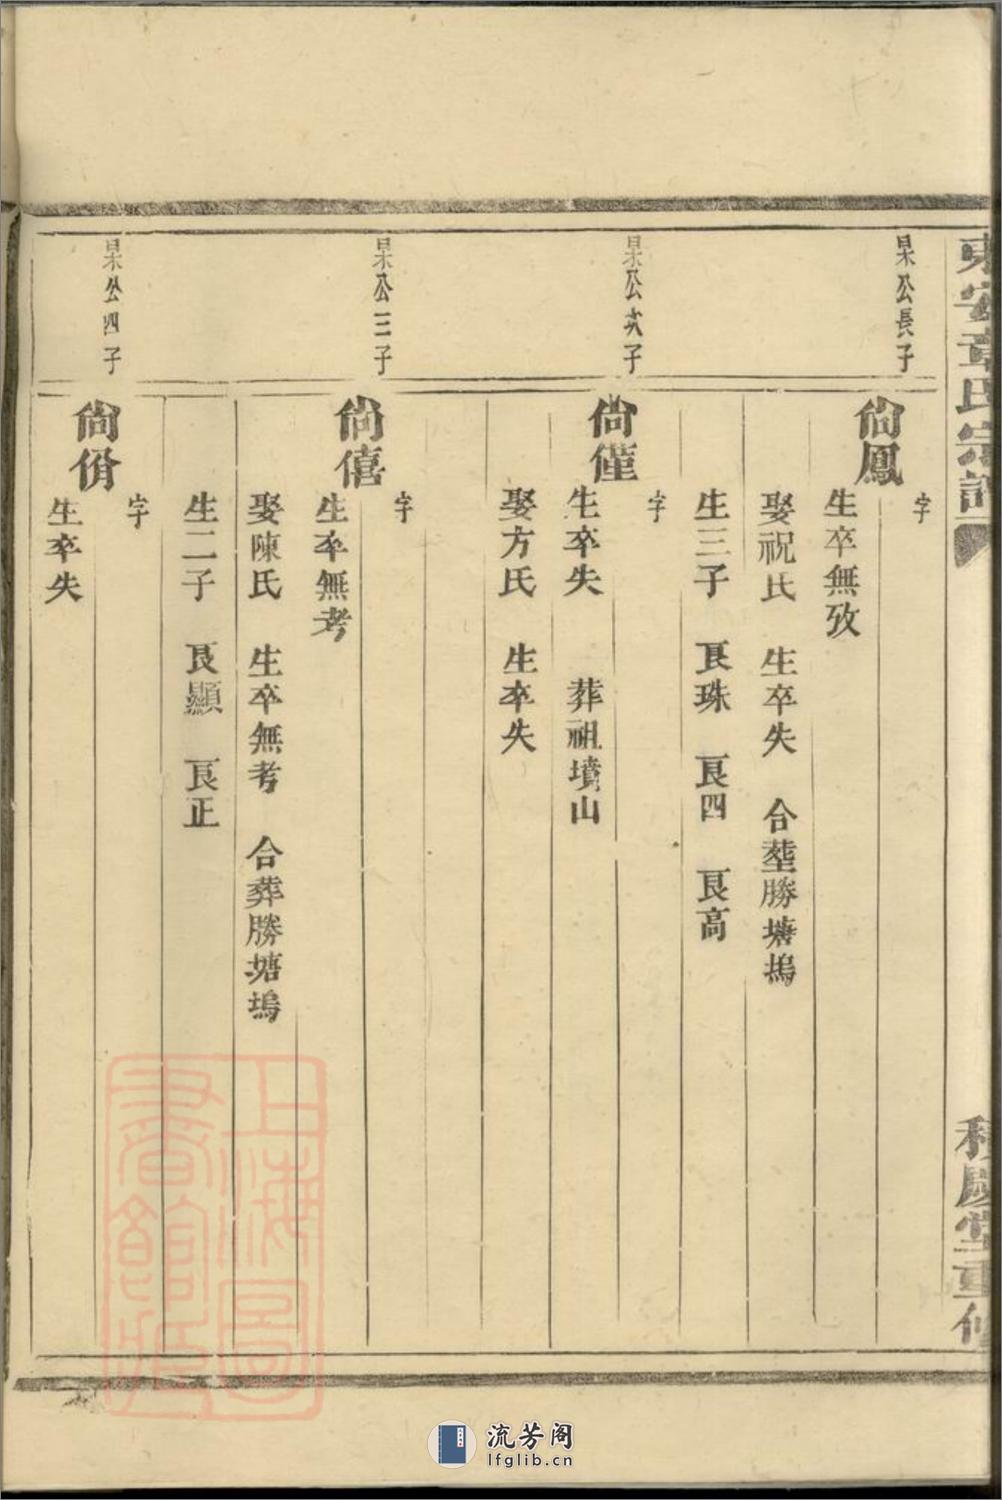 東安章氏宗譜
積慶堂重修
杲公長子
尙鳳
字
生卒無攷
娶祝氏　生卒失　合塟勝塘塢
生三子　良珠　良四　良高
杲公次子
尙僅
字
生卒失　葬祖墳山
娶方氏　生卒失
杲公三子
尙僖
字
生卒無考
娶陳氏　生卒無考　合葬勝塘塢
生二子　良顯　良正
杲公四子
尙
字
生卒失
上海圖
書館藏
流芳阁
lfglib.cn